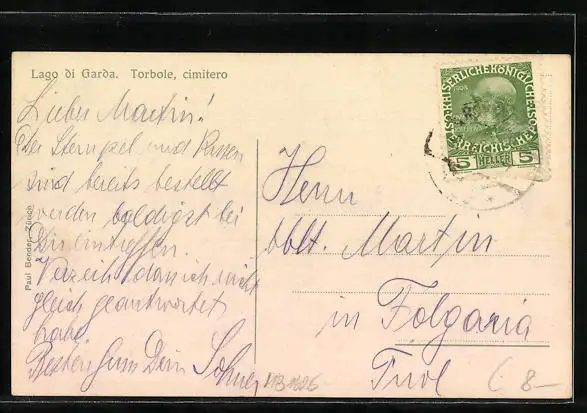 Lago di Garda. Torbole, cimitero
Lieber Martin!
Die Stempel und Kassen
sind bereits bestellt
werden baldigst bei
Dir eintreffen.
Verzeih dass ich nicht
gleich geantwortet
habe.
Besten Gruss Dein
Paul Bender, Zürich
K.K. OESTERREICHISCHE POST
1908
5 HELLER 5
Herrn
Martin
in Folgaria
Tirol
8—